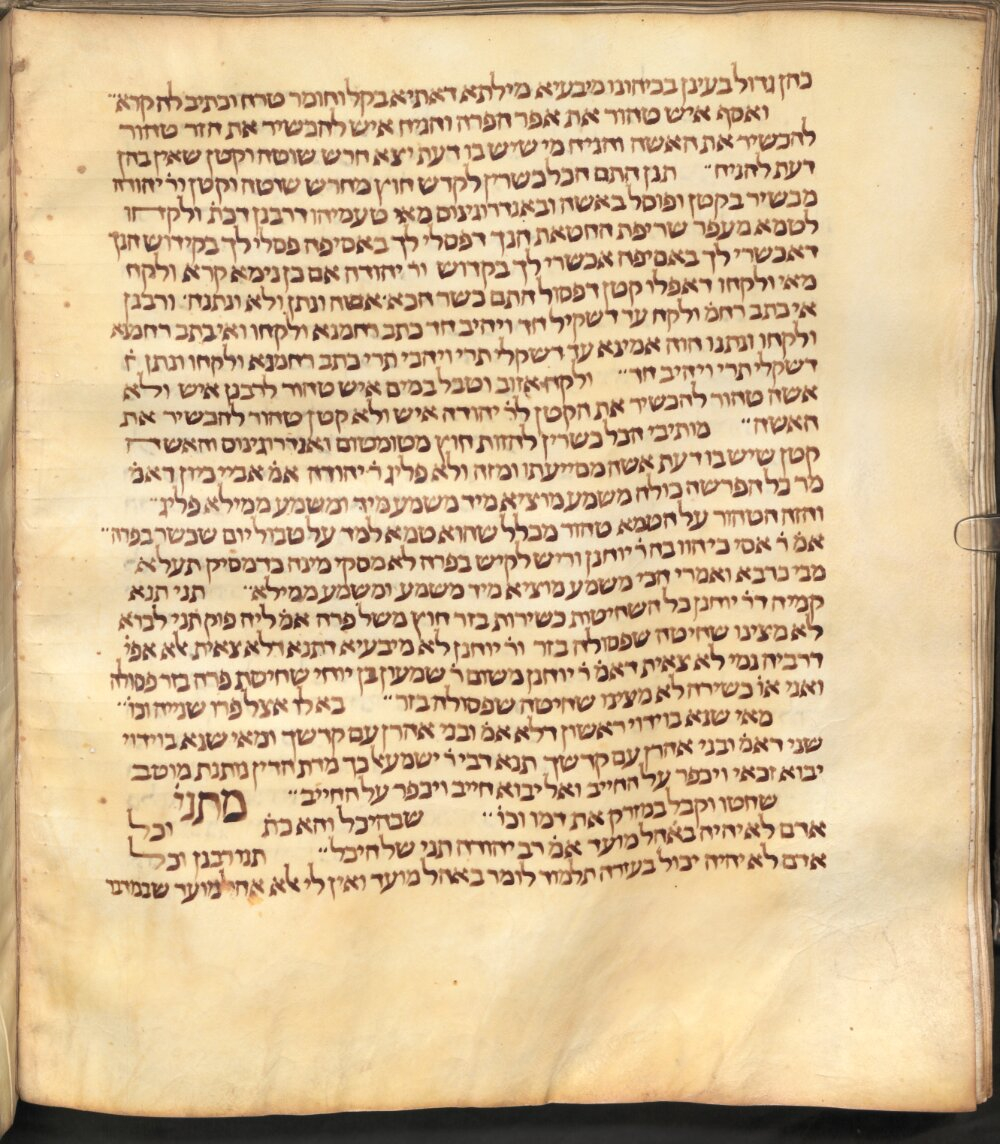 כהן גדול בעינן בכיהונו מיבעיא מילתא דאתיא בקל וחומר טרח וכתיב לה קרא״
ואסף איש טהור את אפר הפרה והניח איש להכשיר את הזר טהור
להכשיר את האשה והניח מי שיש בו דעת יצא חרש שוטה וקטן שאין בהן
דעת להניח״ תנן התם הכל כשרין לקדש חוץ מחרש שוטה וקטן ור׳ יהודה
מכשיר בקטן ופוסל באשה ובאנדרוגינוס מאי טעמיהו דרבנן דכת׳ ולקחו
לטמא מעפר שריפת החטאת הנך דפסלי לך באסיפה פסלי לך בקידוש הנך
דאכשרי לך באסיפה אכשרי לך בקדוש ור׳ יהודה אם כן נימא קרא ולקח
מאי ולקחו דאפלו קטן דפסול התם כשר הכא אשה ונתן ולא ונתנה׳ ורבנן
אי כתב רחמ׳ ולקח עד דשקיל חד ויהיב חד כתב רחמנא ולקחו ואי כתב רחמנא
ולקחו ונתנו הוה אמינא עד דשקלי תרי ויהבי תרי כתב רחמנא ולקחו ונתן
דשקלי תרי ויהיב חד״ ולקח אזוב וטבל במים איש טהור לרבנן איש ולא
אשה טהור להכשיר את הקטן לר׳ יהודה איש ולא קטן טהור להכשיר את
האשה״ מותיבי הכל כשרין להזות חוץ מטומטום ואנדרוגינוס והאשה
קטן שיש בו דעת אשה מסייעתו ומזה ולא פליג ר׳ יהודה אמ׳ אביי כיון דאמ׳
מר כל הפרשה כולה משמע מוציא מיד משמע מיד ומשמע ממילא פליג״
והזה הטהור על הטמא טהור מכלל שהוא טמא למד על טבול יום שכשר בפרה״
אמ׳ ר׳ אסי כי הוו בה ר׳ יוחנן וריש לקיש בפרה לא מסקי מינה כדמסיק תעלא
מבי כרבא ואמרי הכי משמע מוציא מיד משמע ומשמע ממילא״ תני תנא
קמיה דר׳ יוחנן כל השחיטות כשירות בזר חוץ משל פרה אמ׳ ליה פוק תני לברא
לא מצינו שחיטה שפסולה בזר ור׳ יוחנן לא מיבעיא דתנא דלא צאית אלא אפי׳
דרביה נמי לא צאית דאמ׳ ר׳ יוחנן משום ר׳ שמעון בן יוחי שחיטת פרה בזר פסולה
ואני או׳ כשירה לא מצינו שחיטה שפסולה בזר״ בא לו אצל פרו שנייה וכו׳״
מאי שנא בוידוי ראשון דלא אמ׳ ובני אהרן עם קדשך ומאי שנא בוידוי
שני דאמ׳ ובני אהרן עם קדשך תנא דבי ר׳ ישמעאל כך מדת הדין נותנת מוטב
יבוא זכאי ויכפר על החייב ואל יבוא חייב ויכפר על החייב״ מתני׳
שחטו וקבל במזרק את דמו וכו׳״ שבהיכל והא כת׳ וכל
אדם לא יהיה באהל מועד אמ׳ רב יהודה תני של היכל״ תנו רבנן וכל
אדם לא יהיה יכול בעזרה תלמוד לומר באהל מועד ואין לי אלא אהל מועד שבמדבר